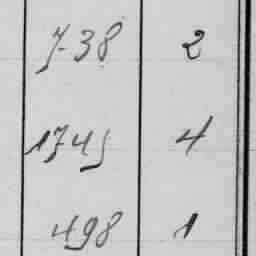 738 2
1745 4
498 1